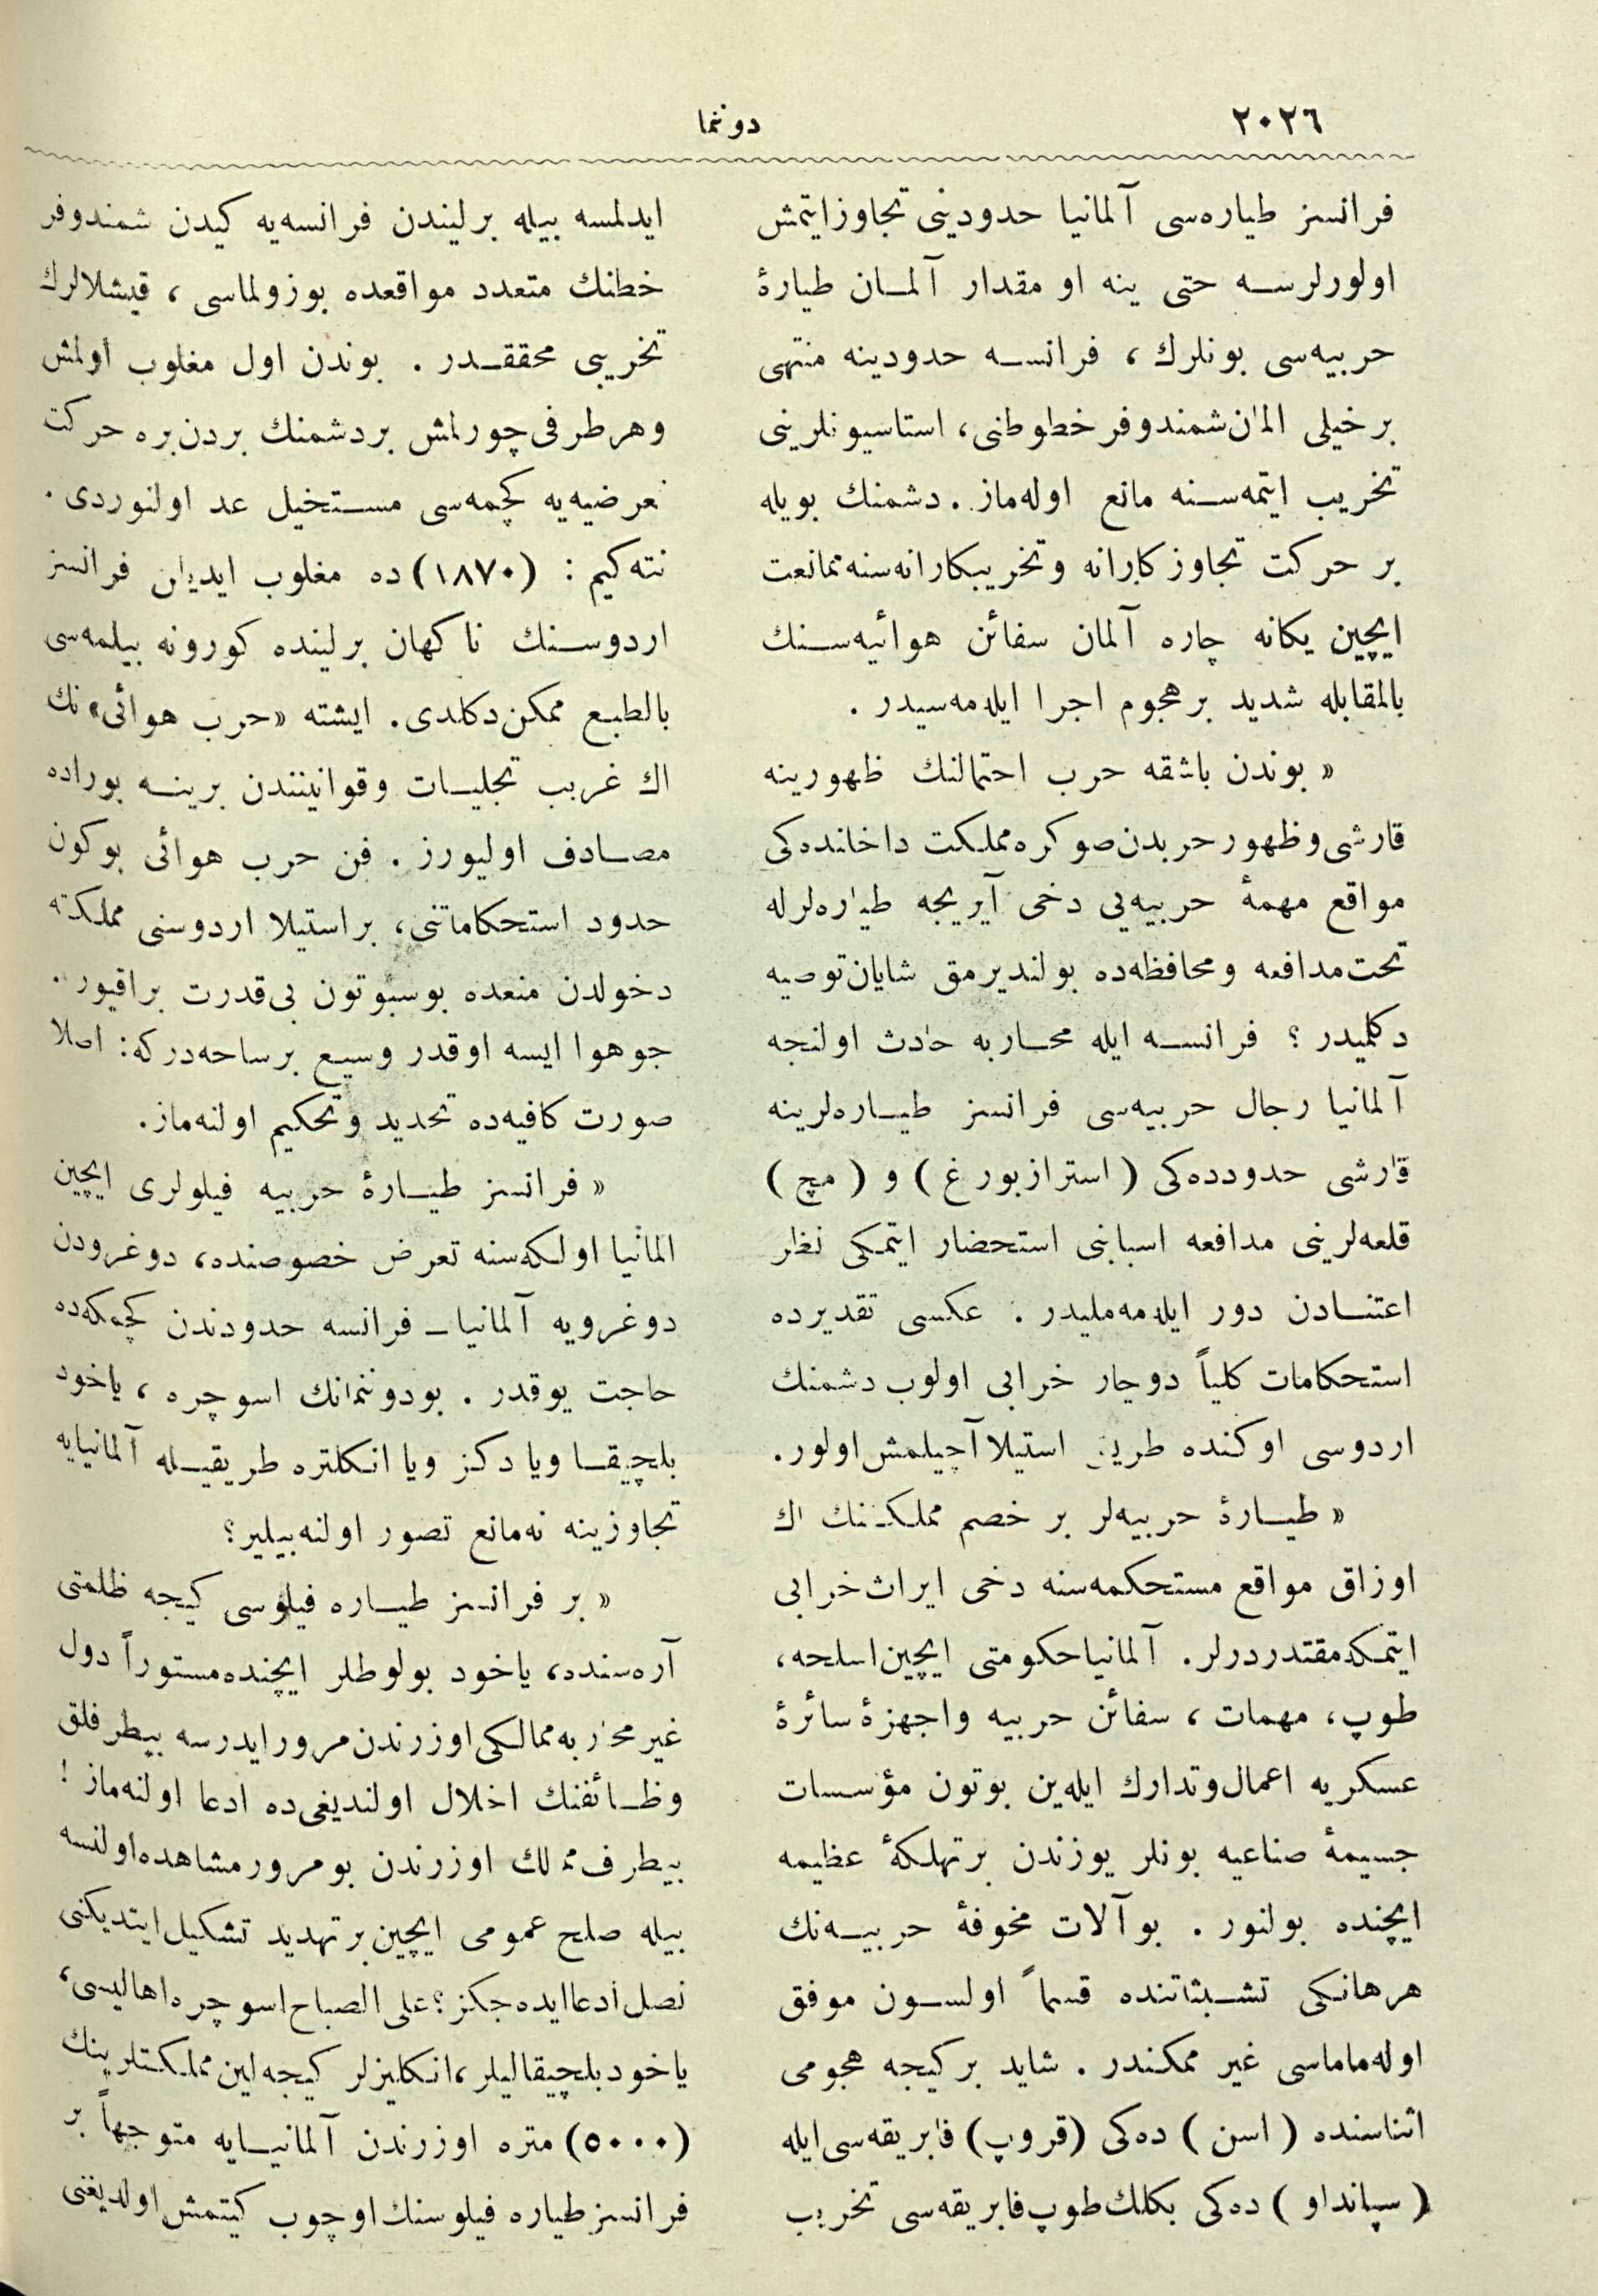 ٢٠٢٦
دونما
فرانسز طياره‌سى آلمانيا حدودينى تجاوزايتمش
اولورلرسه حتى ينه او مقدار آلمان طيارۀ
حربيه‌سى بونلرك ، فرانسه حدودينه منتهى
برخيلى المان شمندوفر خطوطنى، استاسيونلرينى
تخريب ايتمه‌سنه مانع اوله‌ماز . دشمنك بويله
بر حركت تجاوزكارانه وتخريبكارانه‌سنه ممانعت
ايچين يكانه چاره آلمان سفائن هوائيه‌سنك
بالمقابله شديد برهجوم اجرا ايله‌مه‌سيدر .
« بوندن باشقه حرب احتمالنك ظهورينه
قارشى وظهور حربدن صوكره مملكت داخلنده‌كى
مواقع مهمۀ حربيه‌يى دخى آيريجه طياره‌لرله
تحت مدافعه ومحافظه‌ده بولنديرمق شايان توصيه
دكلميدر ؟ فرانسه ايله محاربه حادث اولنجه
آلمانيا رجال حربيه‌سى فرانسز طياره‌لرينه
قارشى حدودده‌كى ( استرازبورغ ) و ( مچ )
قلعه‌لرينى مدافعه اسبابنى استحضار ايتمكى نظر
اعتنادن دور ايله‌مه‌مليدر . عكسى تقديرده
استحكامات كلياً دوچار خرابى اولوب دشمنك
اردوسى اوكنده طريق استيلا آچيلمش اولور.
« طيارۀ حربيه‌لر بر خصم مملكتنك اك
اوزاق مواقع مستحكمه‌سنه دخى ايراث خرابى
ايتمكه مقتدردرلر. آلمانيا حكومتى ايچين اسلحه،
طوپ، مهمات ، سفائن حربيه واجهزۀ سائرۀ
عسكريه اعمال وتدارك ايله‌ين بوتون مؤسسات
جسيمۀ صناعيه بونلر يوزندن برتهلكۀ عظيمه
ايچنده بولنور . بو آلات مخوفۀ حربيه‌نك
هرهانكى تشبثاتنده قسماً اولسون موفق
اوله‌ماماسى غير ممكندر . شايد بركيجه هجومى
اثناسنده ( اسن ) ده‌كى (قروپ) فابريقه‌سى ايله
( سپانداو ) ده‌كى بكلك طوپ فابريقه‌سى تخريب
ايدلمسه بيله برليندن فرانسه‌يه كيدن شمندوفر
خطنك متعدد مواقعده بوزولماسى ، قيشلالرك
تخريبى محققدر . بوندن اول مغلوب اولمش
وهرطرفى چورلمش بردشمنك بردن بره حركت
تعرضيه‌يه كچمه‌سى مستخيل عد اولنوردى .
نته‌كيم : (١٨٧٠) ده مغلوب ايديلن فرانسز
اردوسنك ناكهان برلينده كورونه بيلمه‌سى
بالطبع ممكن دكلدى. ايشته «حرب هوائى» نك
اك غريب تجليات وقوانينندن برينه بوراده
مصادف اوليورز . فن حرب هوائى بوكون
حدود استحكاماتنى، براستيلا اردوسنى مملكته
دخولدن منعده بوسبوتون بى‌قدرت براقيور .
جوهوا ايسه اوقدر وسيع برساحه‌دركه: اصلا
صورت كافيه‌ده تحديد وتحكيم اولنه‌ماز.
« فرانسز طيارۀ حربيه فيلولرى ايچين
المانيا اولكه‌سنه تعرض خصوصنده، دوغرودن
دوغرويه آلمانيا ـ فرانسه حدودندن كچمكه‌ده
حاجت يوقدر . بودوننمانك اسوچره ، ياخود
بلچيقا ويا دكز ويا انكلتره طريقيله آلمانيايه
تجاوزينه نه‌مانع تصور اولنه‌بيلير؟
« بر فرانسز طياره فيلوسى كيجه ظلمتى
آره‌سنده، ياخود بولوطلر ايچنده مستوراً دول
غيرمحاربه ممالكى اوزرندن مرور ايدرسه بيطرفلق
وظائفنك اخلال اولنديغى‌ده ادعا اولنه‌ماز !
بيطرف ممالك اوزرندن بومرور مشاهده اولنسه
بيله صلح عمومى ايچين برتهديد تشكيل ايتديكنى
نصل ادعا ايده‌جكز؟ على الصباح اسوچره اهاليسى،
ياخود بلچيقاليلر، انكليزلر كيجه‌لين مملكتلرينك
(٥٠٠٠) متره اوزرندن آلمانيايه متوجهاً بر
فرانسز طياره فيلوسنك اوچوب كيتمش اولديغنى